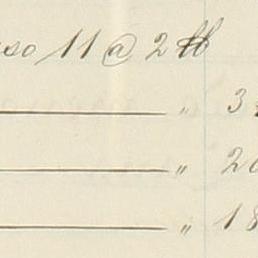 so 11 @ 2 ℔
" 3
" 20
" 18